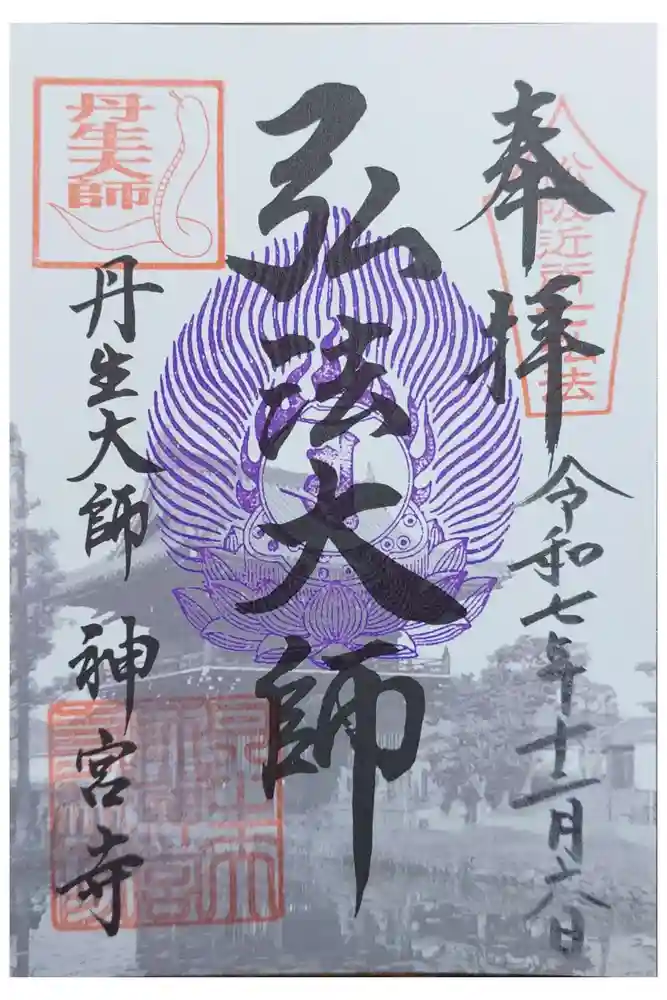 奉拝
令和七年十二月六日
弘法大師
丹生大師
丹生大師 神宮寺